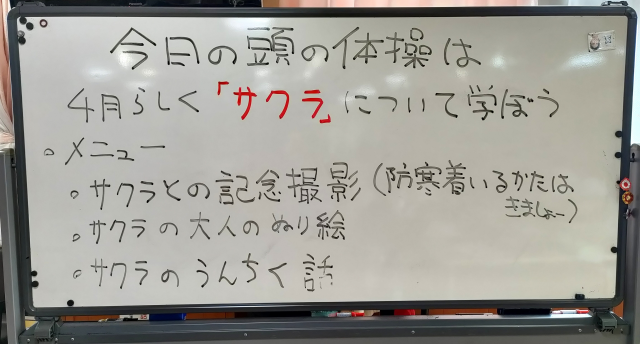 今日の頭の体操は
4月らしく「サクラ」について学ぼう
○メニュー
○サクラとの記念撮影(防寒着いるかたは
きましょー)
○サクラの大人のぬり絵
○サクラのうんちく話